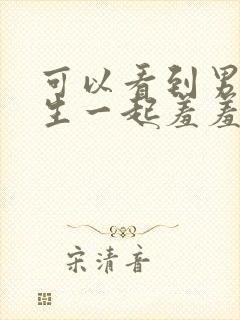 可以看到男
生一起羞羞
宋清音